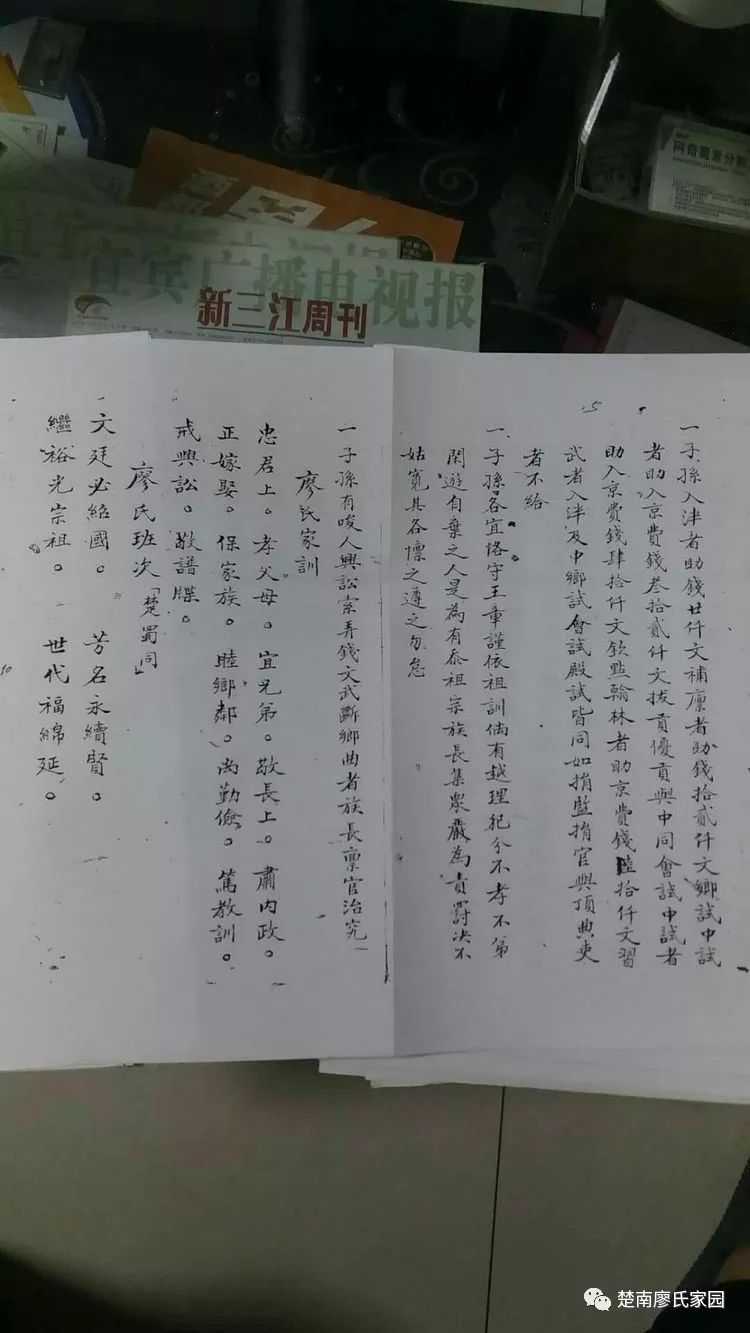 宜宾广播电视报
新三江周刊
阿奇霉素分散
5
一子孫入泮者助錢廿仟文補廩者助錢拾貳仟文鄉試中試
者助入京費錢叁拾貳仟文拔貢優貢與中同會試中試者
助入京費錢肆拾仟文欽點翰林者助京費錢陸拾仟文習
武者入泮及中鄉試會試殿試皆同如捐監捐官與頂典吏
者不給
一子孫各宜恪守王章謹依祖訓倘有越理犯分不孝不弟
閑遊自棄之人是為有忝祖宗族長集眾嚴為責罰決不
姑寬其各凛之遵之勿怠
一子孫有唆人興訟索弄錢文武斷鄉曲者族長禀官治究
廖氏家訓
忠君上。孝父母。宜兄弟。敬長上。肅內政。
正嫁娶。保家族。睦鄉鄰。尚勤儉。篤教訓。
戒興訟。敬譜牒。
廖氏班次「楚蜀同」
文廷必紹國。 芳名永續賢。
繼裕光宗祖。 世代福綿延。
10
楚南廖氏家园